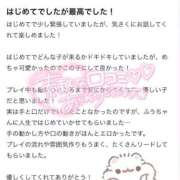 はじめてでしたが最高でした！
はじめてで少し緊張していましたが、気さくにお話してく
れて楽しめました！
はじめてでどんな子が来るかドキドキしていましたが、め
ちゃ可愛かったのでこの子にして良かった！
プレイ中も
子だと思いました！
実は手と口だけで
ふうちゃ
んに人生ではじめていかせてもらいました…
手の動かし方や口の動きがほんとエロかったです。
プレイの流れや雰囲気作りもうまく、たくさんリードして
もらいました。
優しくしてくれてありがとう！